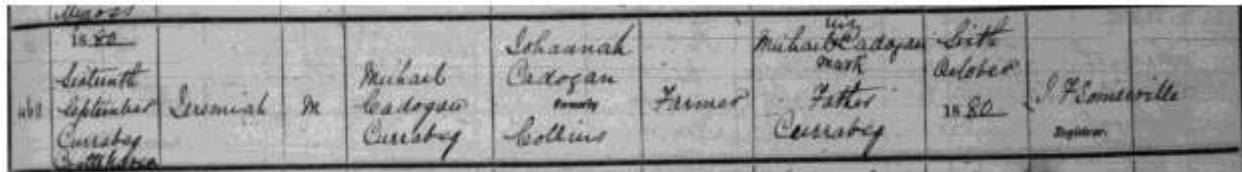 Myross
1880
Sixteenth
September
Currabeg
460
Jeremiah
M
Michael
Cadogan
Currabeg
Johannah
Cadogan
formerly
Collins
Farmer
his
Michael Cadogan
mark
Father
Currabeg
Sixth
October
1880
J F Somerville
Registrar.